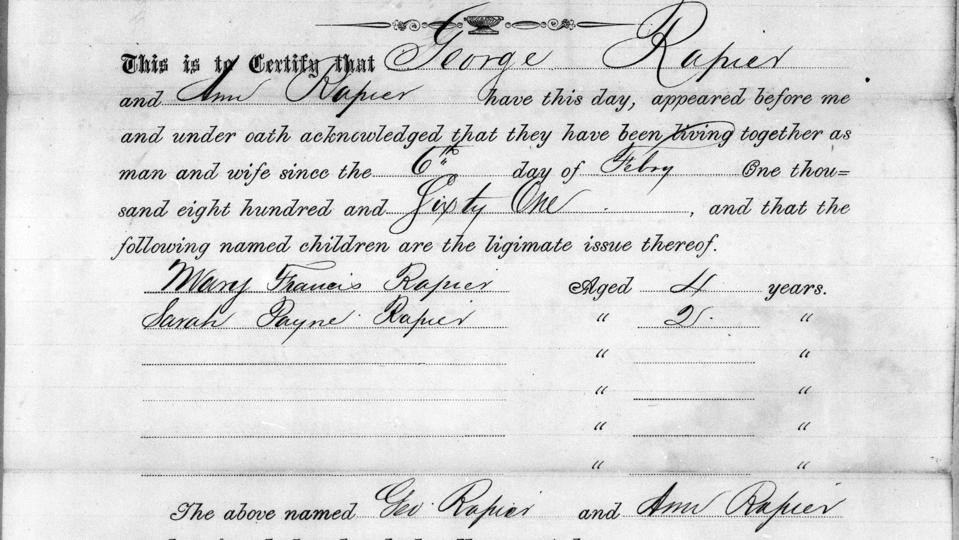 This is to Certify that George Rapier
and Ann Rapier have this day, appeared before me
and under oath acknowledged that they have been living together as
man and wife since the 6th day of Febry One thou=
sand eight hundred and Sixty One, and that the
following named children are the ligimate issue thereof.
Mary Francis Rapier Aged 4 years.
Sarah Payne Rapier " 2 "
" "
" "
" "
" "
The above named Geo Rapier and Ann Rapier